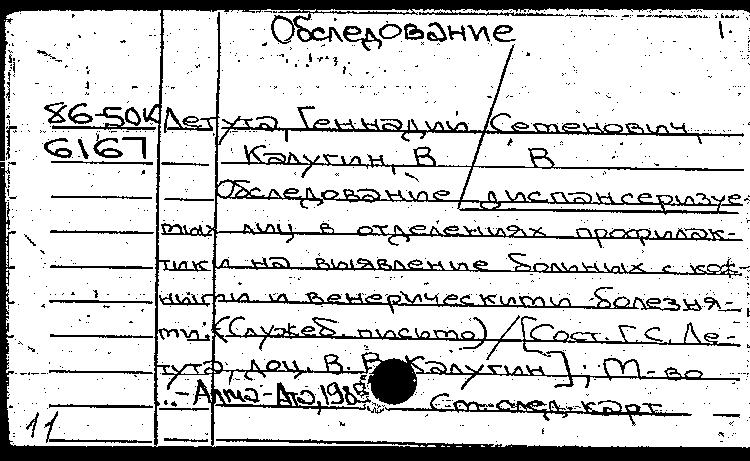 Обследование 1.
86-50К Летута, Геннадий Семенович,
6167 Калугин, В В
Обследование диспансеризуе-
мых лиц в отделениях профилак-
тики на выявление больных с кож-
ными и венерическими болезня-
ми: (Служеб. письмо) / [Сост. Г. С. Ле-
тута, доц. В. В. Калугин]; М-во
..- Алма-Ата, 198 См. след. карт.
11